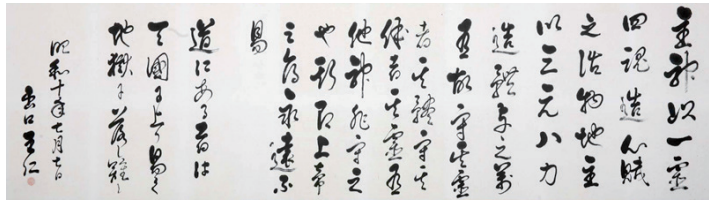 主神以一靈
四魂造心賦
之活物地主
以三元八力
造體与之萬
有故守其靈
者其體守其
体者其靈有
他神非守之
也斯即上帝
之命永遠不
易
道にある者は
天國に上り易く
地獄に落難し
昭和十年七月七日
出口王仁